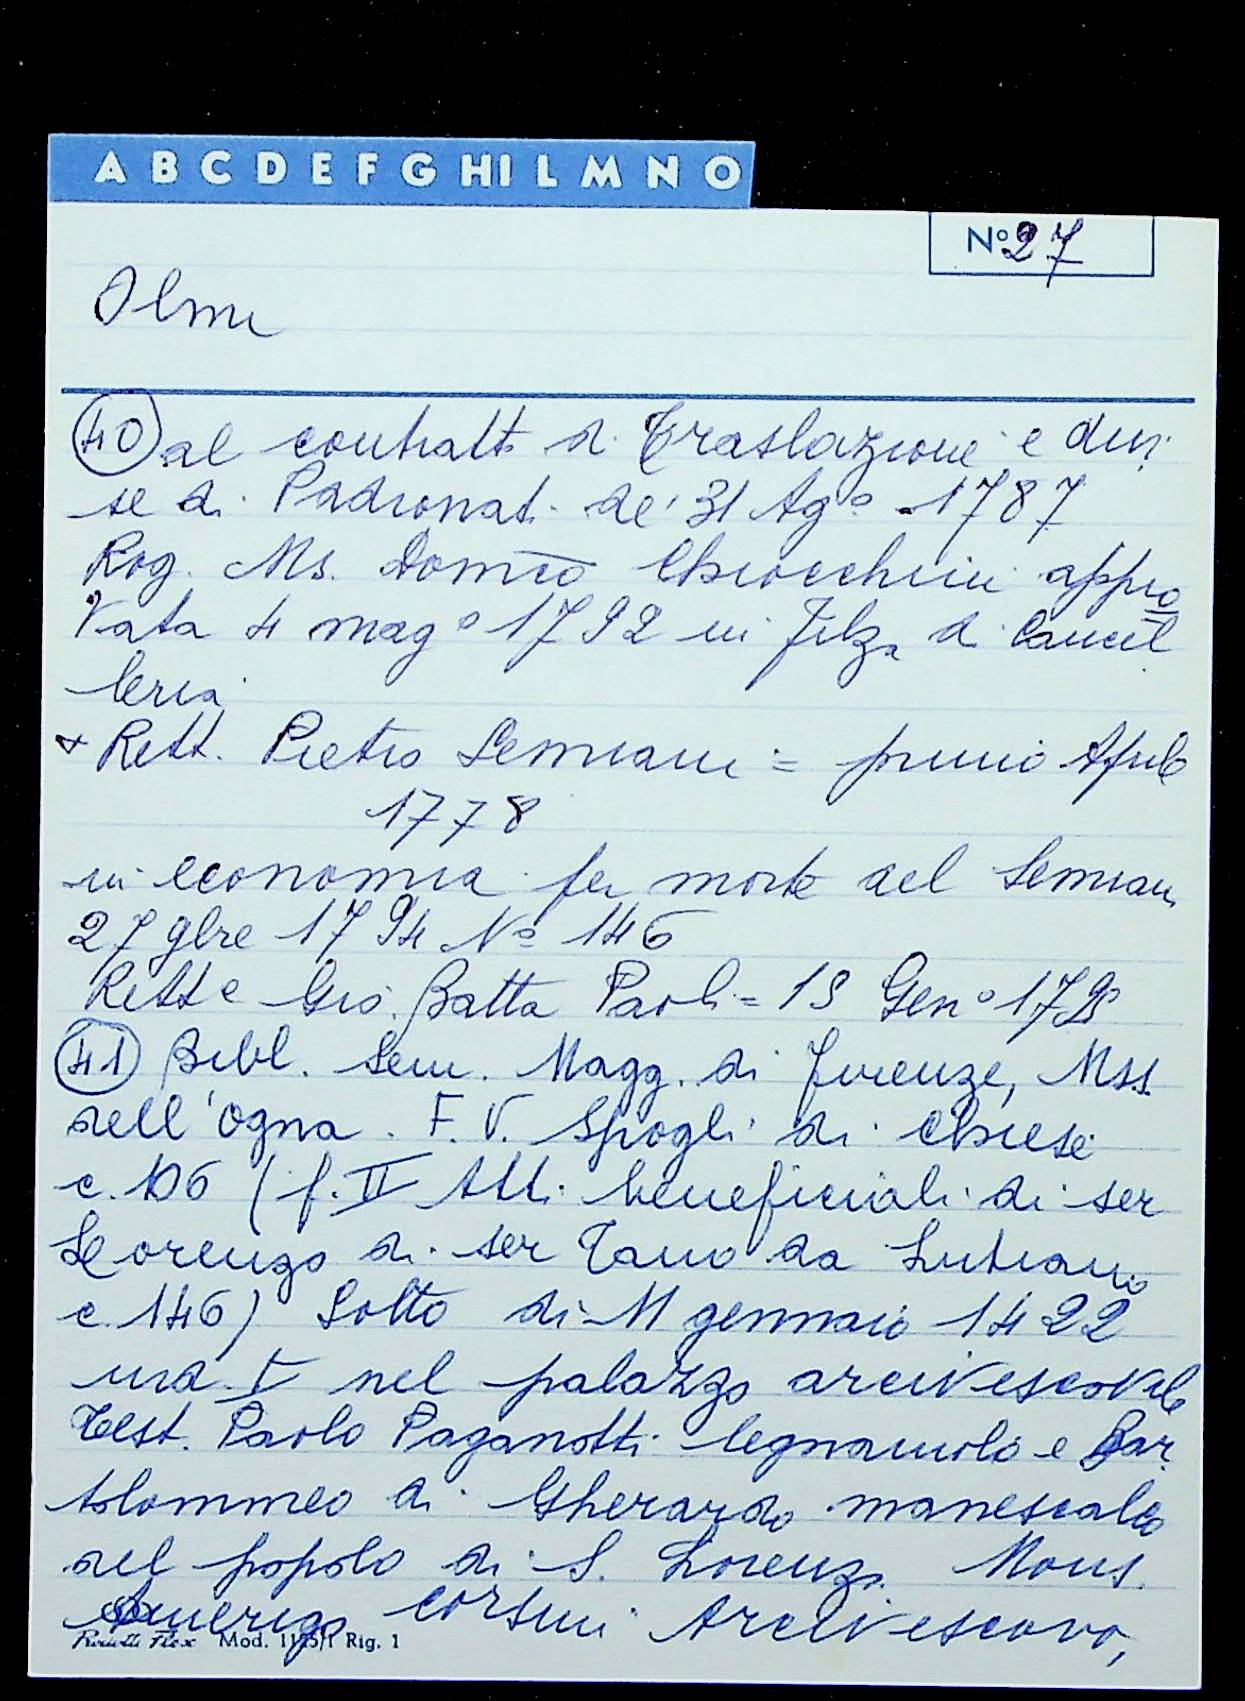 A B C D E F G HI L M N O
Nº 27
Olmi
40 al contratto di Traslazione e divi
se di Padronati de' 31 Agº 1787
Rog. Ms. Domco Chiocchini appro
vata 4 magº 1792 in Filza di Cancel
leria
+ Rett. Pietro Semiani = primo Aprile
1778
in economia per morte del Semiani
27 9bre 1794 Nº 146
Rett e Gio. Batta Paoli = 19 Genº 1795
41 Bibl. Sem. Magg. di Firenze, Mss.
dell'Ogna. F. V. Spogli di Chiese
c. 106 (f. II Atti beneficiali di ser
Lorenzo di ser Tano da Lutiano
c. 146) Sotto di 11 gennaio 1422
ind. I nel palazzo arcivescovile
Test. Paolo Paganotti legnaiuolo e Bar
tolommeo di Gherardo manescalco
del popolo di S. Lorenzo. Mons.
Amerigo Corsini Arcivescovo,
Flex Mod. 1125/1 Rig. 1